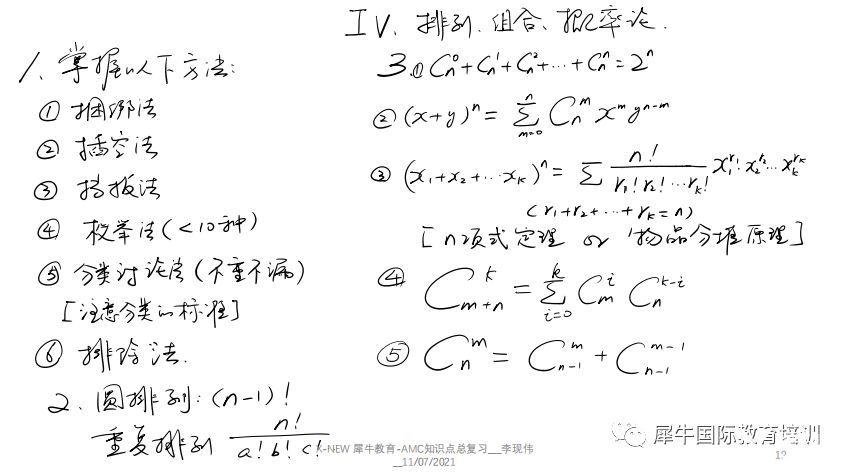 IV、排列、组合、概率论.
1、掌握以下方法:
① 捆绑法
② 插空法
③ 挡板法
④ 枚举法(<10种)
⑤ 分类讨论法(不重不漏)
[注意分类的标准]
⑥ 排除法.
2、圆排列: (n-1)!
重复排列 n!/(a!b!c!)
3.① C_n^0+C_n^1+C_n^2+…+C_n^n=2^n
② (x+y)^n = ∑_{m=0}^{n} C_n^m x^m y^{n-m}
③ (x_1+x_2+…x_k)^n = ∑ n!/(r_1!r_2!…r_k!) x_1^{r_1}·x_2^{r_2}…x_k^{r_k}
(r_1+r_2+…+r_k=n)
[n项式定理 or 物品分堆原理]
④ C_{m+n}^k = ∑_{i=0}^{k} C_m^i C_n^{k-i}
⑤ C_n^m = C_{n-1}^m + C_{n-1}^{m-1}
X-NEW 犀牛教育-AMC知识点总复习__李现伟
__11/07/2021
犀牛国际教育培训